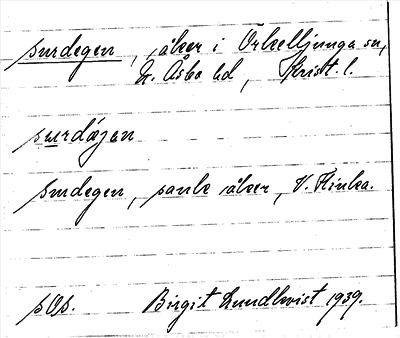 surdegen, åker i Örkelljunga sn,
N. Åsbo hd, Krist. l.
surdägen
surdegen, sank åker, V. Flinka.
sOs. Birgit Lundkvist 1939.